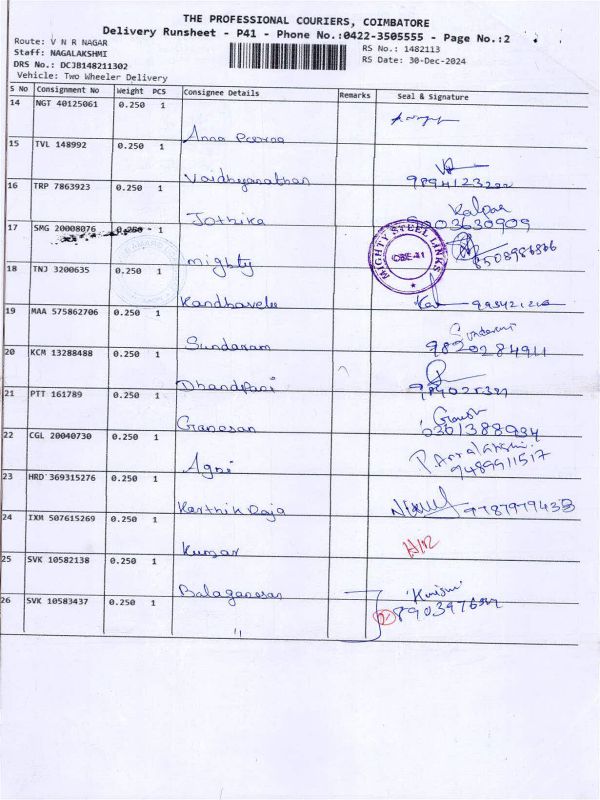 THE PROFESSIONAL COURIERS, COIMBATORE
Delivery Runsheet - P41 - Phone No.:0422-3505555 - Page No.:2
Route: V N R NAGAR
RS No.: 1482113
Staff: NAGALAKSHMI
RS Date: 30-Dec-2024
DRS No.: DCJB148211302
Vehicle: Two Wheeler Delivery
S No Consignment No Weight PCS Consignee Details Remarks Seal & Signature
14 NGT 40125061 0.250 1
Anna Poorna
15 TVL 148992 0.250 1
Vaidhyanathan
16 TRP 7863923 0.250 1
Jothika 9003630909
17 SMG 20008076 0.250 1
mighty 8508986566
MIGHTY STEEL LINKS
CBE-41
18 TNJ 3200635 0.250 1
Kandhavelu
19 MAA 575862706 0.250 1
Sundaram 9820284911
20 KCM 13288488 0.250 1
Dhandpani
21 PTT 161789 0.250 1
Ganesan
22 CGL 20040730 0.250 1
Agni 9489911517
23 HRD 369315276 0.250 1
Karthik Raja 9787979433
24 IXM 507615269 0.250 1
Kumar
25 SVK 10582138 0.250 1
Balaganesan
26 SVK 10583437 0.250 1
"